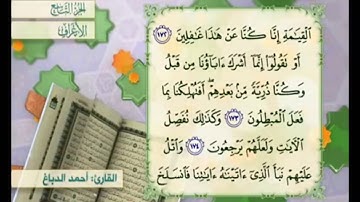 الجزء التاسع
الأعراف
ٱلْقِيَٰمَةِ إِنَّا كُنَّا عَنْ هَٰذَا غَٰفِلِينَ ١٧٢
أَوْ تَقُولُوٓا۟ إِنَّمَآ أَشْرَكَ ءَابَآؤُنَا مِن قَبْلُ
وَكُنَّا ذُرِّيَّةً مِّنۢ بَعْدِهِمْ أَفَتُهْلِكُنَا بِمَا
فَعَلَ ٱلْمُبْطِلُونَ ١٧٣ وَكَذَٰلِكَ نُفَصِّلُ
ٱلْءَايَٰتِ وَلَعَلَّهُمْ يَرْجِعُونَ ١٧٤ وَٱتْلُ
عَلَيْهِمْ نَبَأَ ٱلَّذِىٓ ءَاتَيْنَٰهُ ءَايَٰتِنَا فَٱنسَلَخَ
القارئ: أحمد الدباغ